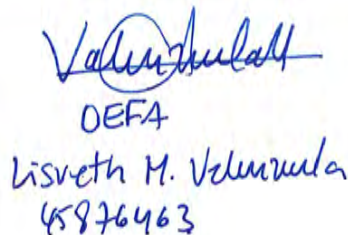 OEFA
Lisveth M. Valenzuela
45876463